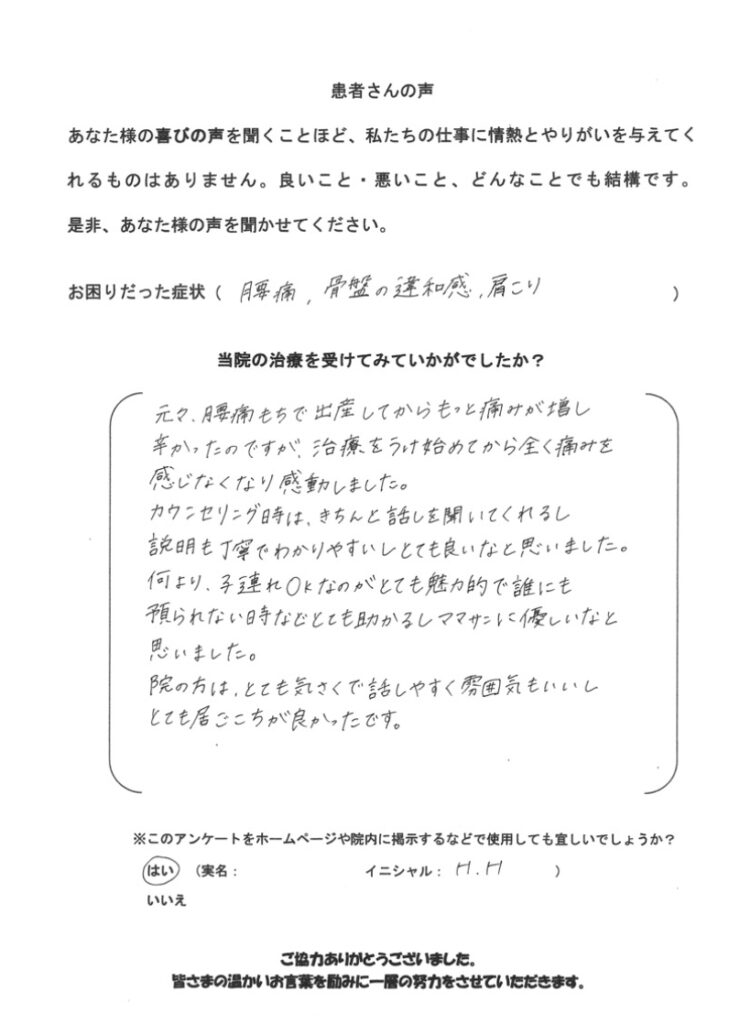 患者さんの声
あなた様の喜びの声を聞くことほど、私たちの仕事に情熱とやりがいを与えてく
れるものはありません。良いこと・悪いこと、どんなことでも結構です。
是非、あなた様の声を聞かせてください。
お困りだった症状（ 腰痛，骨盤の違和感，肩こり ）
当院の治療を受けてみていかがでしたか？
元々、腰痛もちで出産してからもっと痛みが増し
辛かったのですが、治療をうけ始めてから全く痛みを
感じなくなり感動しました。
カウンセリング時は、きちんと話しを聞いてくれるし
説明も丁寧でわかりやすいしとても良いなと思いました。
何より、子連れOKなのがとても魅力的で誰にも
預られない時などとても助かるしママサンに優しいなと
思いました。
院の方は、とても気さくで話しやすく雰囲気もいいし
とても居ごこちが良かったです。
※このアンケートをホームページや院内に掲示するなどで使用しても宜しいでしょうか？
はい （実名： イニシャル： H.H ）
いいえ
ご協力ありがとうございました。
皆さまの温かいお言葉を励みに一層の努力をさせていただきます。